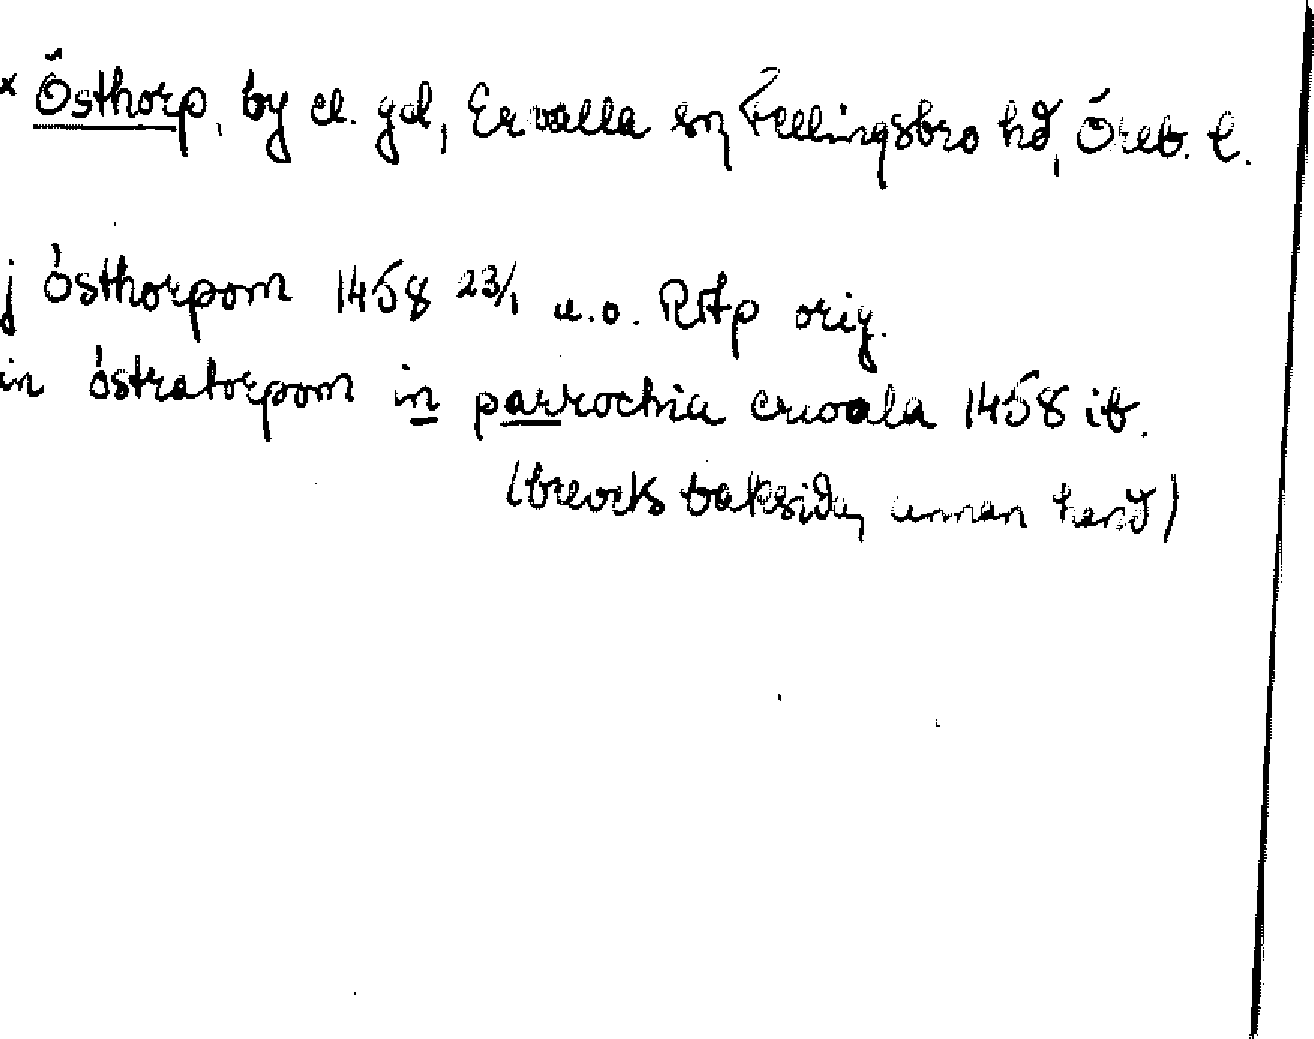 x Östhorp, by el. gd, Ervalla sn, Fellingsbro hd, Öreb. l.
j östhorpom 1458 23/1 u.o. RAp orig.
in östratorpom in parrochia erwala 1458 ib.
(brevets baksida, annan hand)